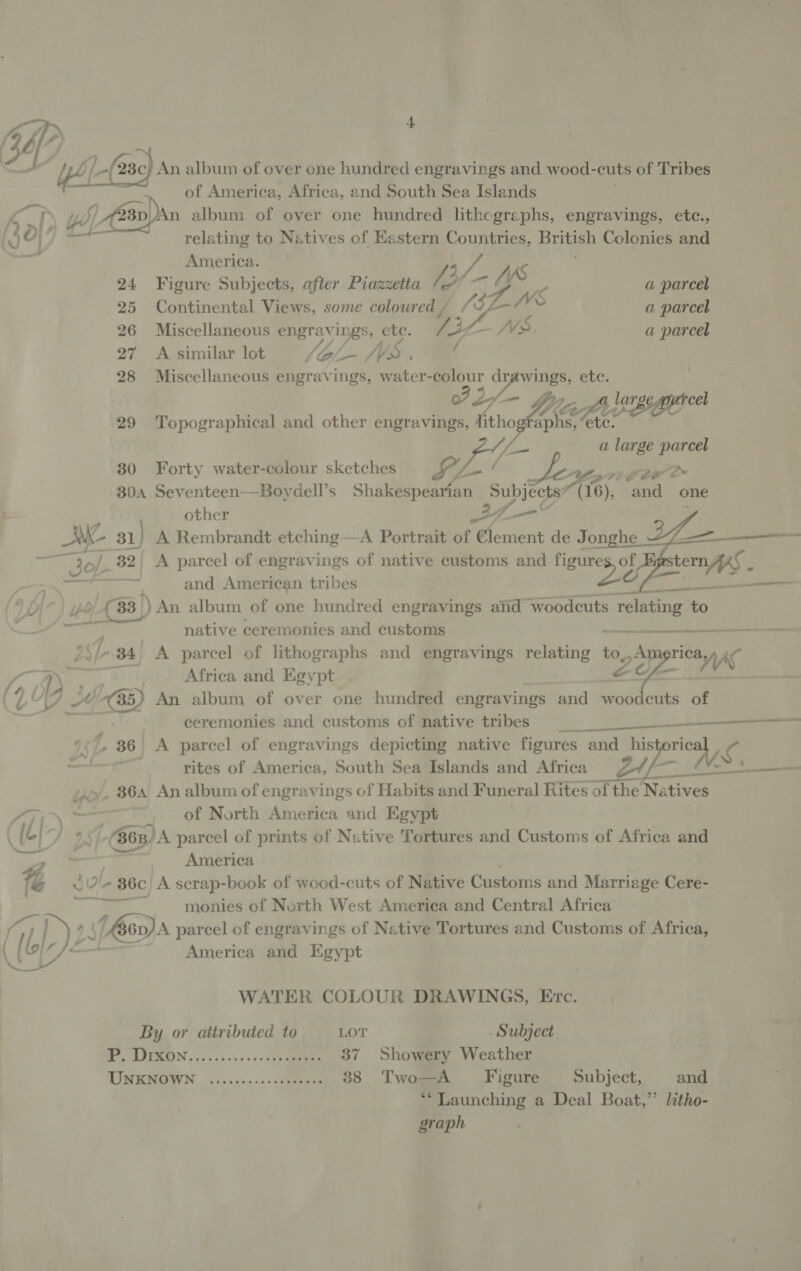 4
36/-
40/- 23c An album of over one hundred engravings and wood-cuts of Tribes
of America, Africa, and South Sea Islands
40/- 23D An album of over one hundred lithographs, engravings, etc.,
30/- relating to Natives of Eastern Countries, British Colonies and
America.
24 Figure Subjects, after Piazzetta 12/- NS a parcel
25 Continental Views, some coloured NS a parcel
26 Miscellaneous engravings, etc. NS. a parcel
27 A similar lot 16/- NS.
28 Miscellaneous engravings, water-colour drawings, etc.
a large parcel
29 Topographical and other engravings, lithographs, etc.
21/- a large parcel
30 Forty water-colour sketches
30A Seventeen—Boydell's Shakespearian Subjects (16), and one
other
31 A Rembrandt etching—A Portrait of Clement de Jonghe
30/- 32 A parcel of engravings of native customs and figures, of Eastern NS.
and American tribes 20/-
40/- 33 An album of one hundred engravings and woodcuts relating to
native ceremonies and customs
25/- 34 A parcel of lithographs and engravings relating to America, NS
Africa and Egypt
35 An album of over one hundred engravings and woodcuts of
ceremonies and customs of native tribes
25/- 36 A parcel of engravings depicting native figures and historical NS.
rites of America, South Sea Islands and Africa 21/-
40/- 36A An album of engravings of Habits and Funeral Rites of the Natives
of North America and Egypt
16/- 25/- 36B A parcel of prints of Native Tortures and Customs of Africa and
America
30/- 36C A scrap-book of wood-cuts of Native Customs and Marriage Cere-
monies of North West America and Central Africa
16/- 25/- 36D A parcel of engravings of Native Tortures and Customs of Africa,
America and Egypt
WATER COLOUR DRAWINGS, ETC.
By or attributed to LOT Subject
P. DIXON........................ 37 Showery Weather
UNKNOWN ..................... 38 Two—A Figure Subject, and
"Launching a Deal Boat," litho-
graph